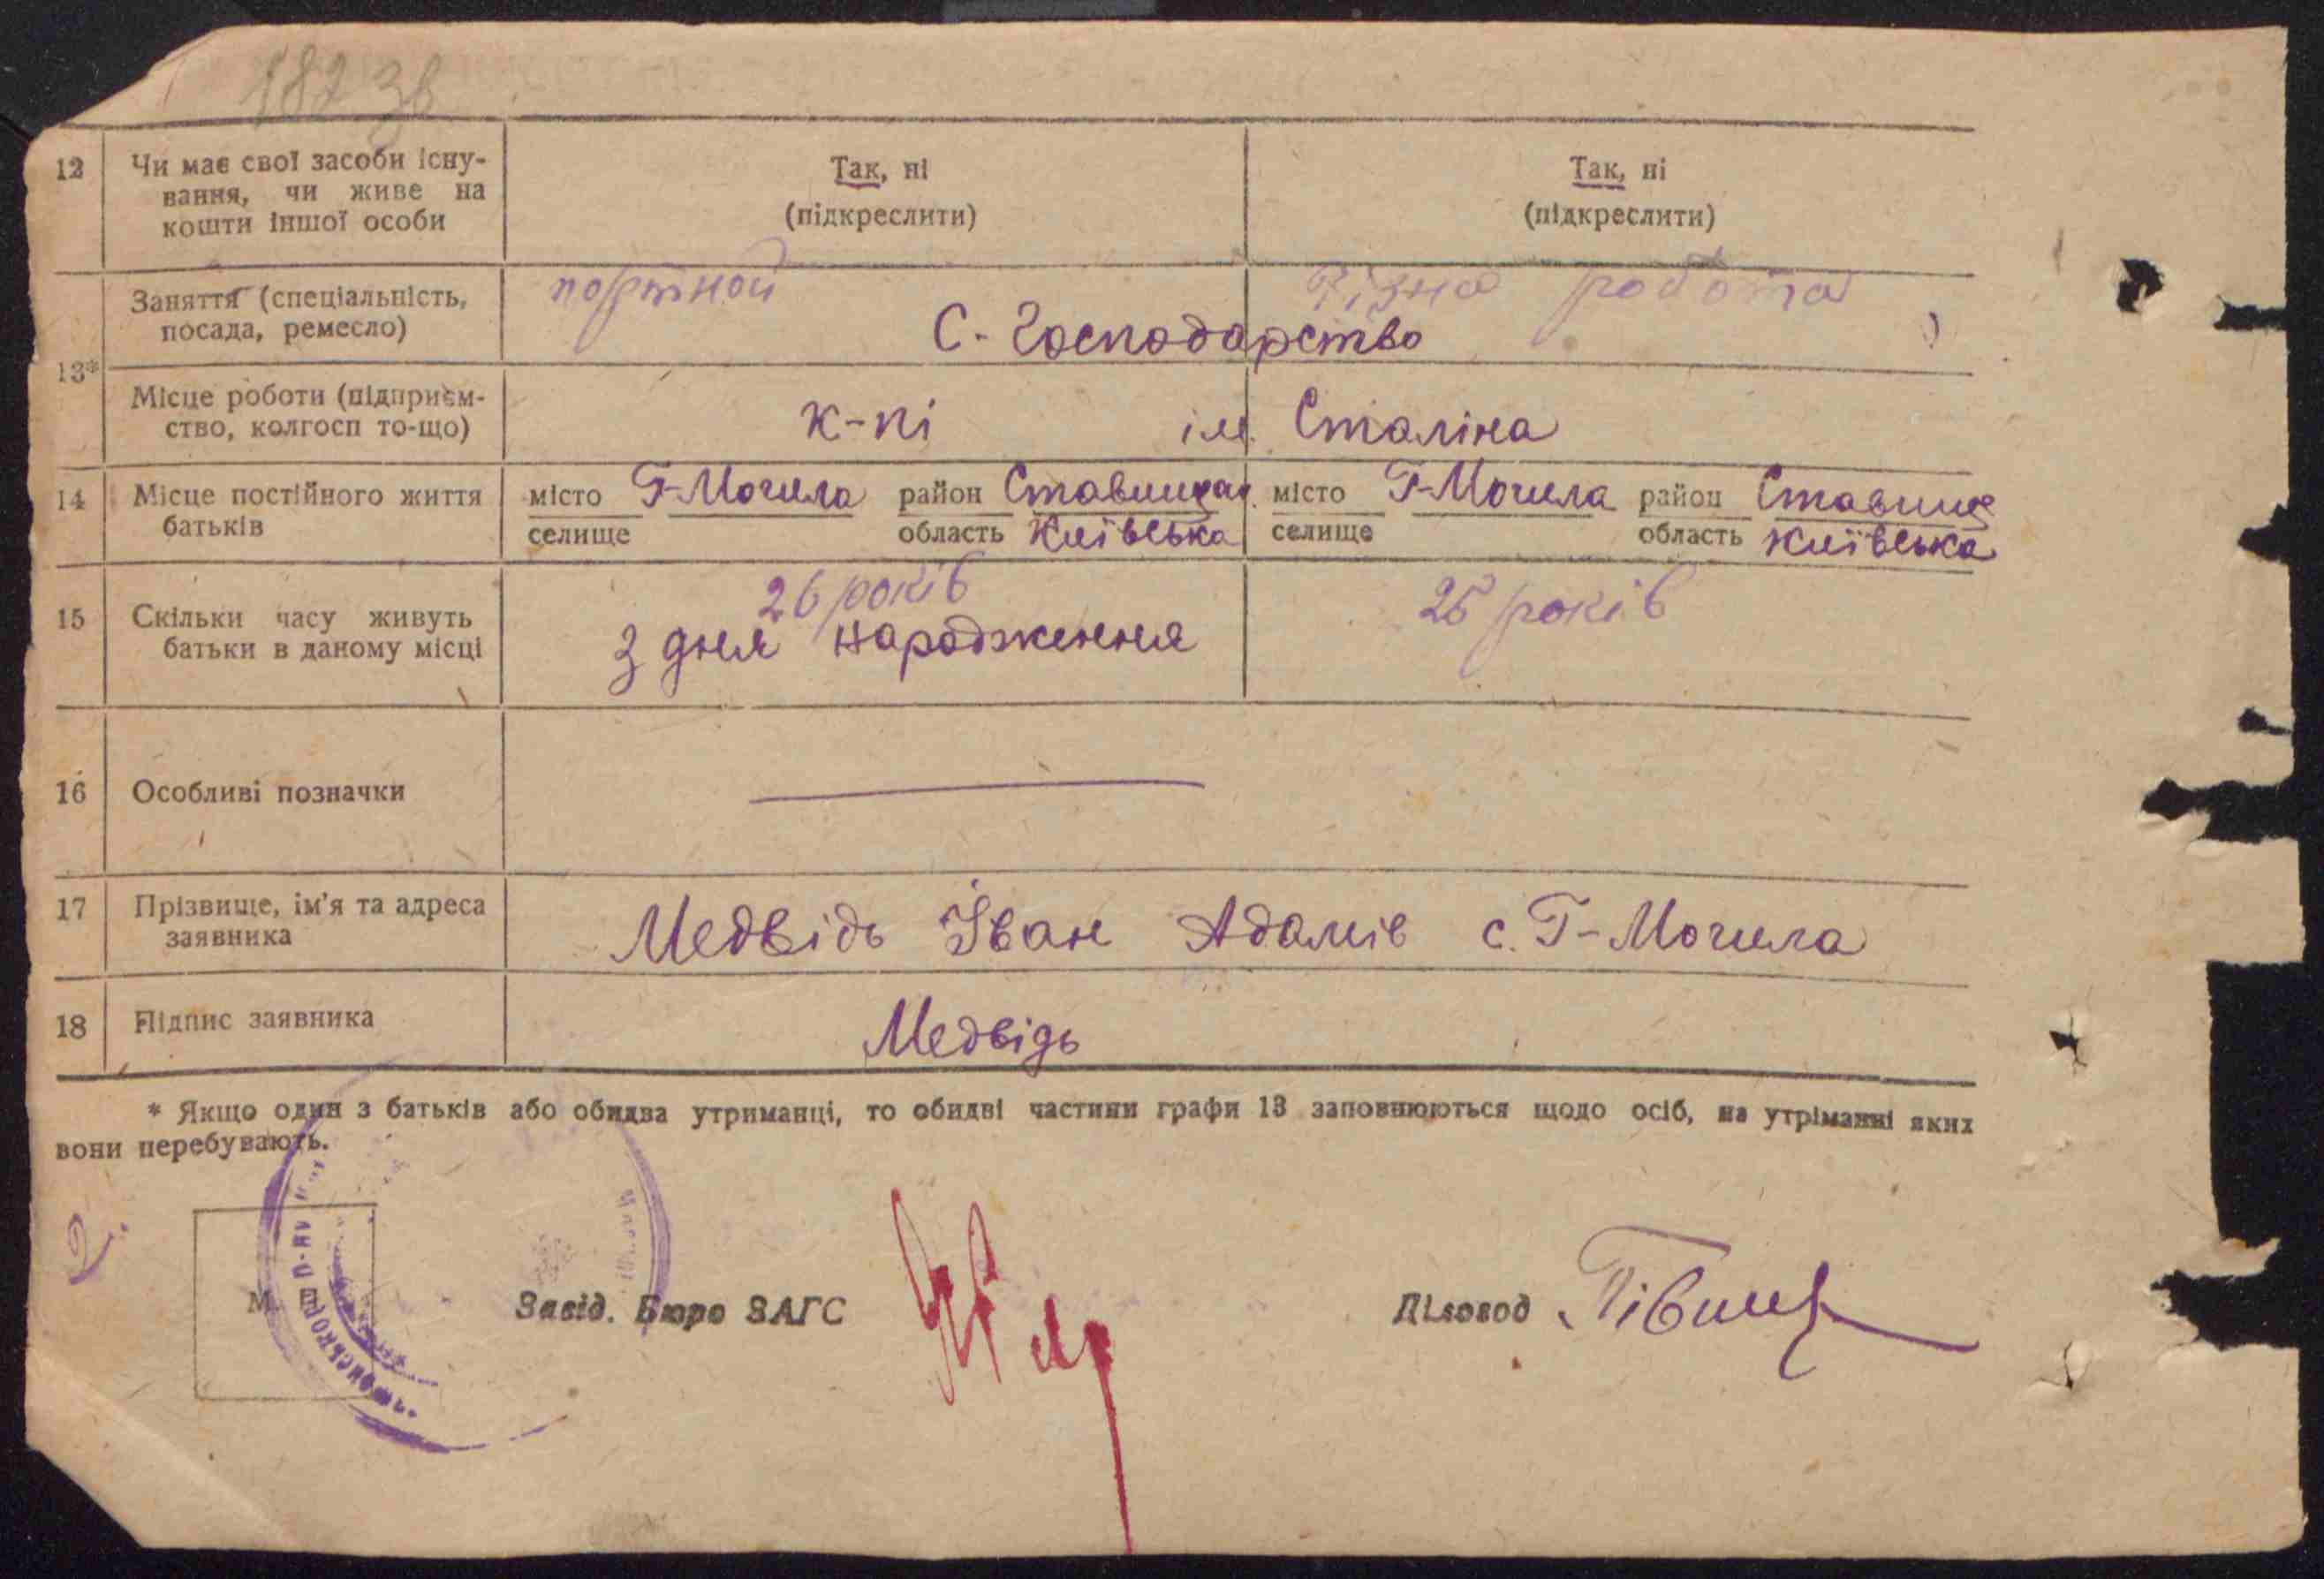 182 зв
12 Чи має свої засоби існу-
вання, чи живе на
кошти іншої особи
Так, ні
(підкреслити)
Так, ні
(підкреслити)
13*
Заняття (спеціальність,
посада, ремесло)
портной
різна робота
С-Господарство
Місце роботи (підприєм-
ство, колгосп то-що)
к-пі ім. Сталіна
14 Місце постійного життя
батьків
місто Г-Могила район Ставищан.
селище область Київська
місто Г-Могила район Ставищ
селище область Київська
15 Скільки часу живуть
батьки в даному місці
26 років
З дня народження
25 років
16 Особливі позначки
17 Прізвище, ім'я та адреса
заявника
Медвідь Іван Адамів с. Г-Могила
18 Підпис заявника
Медвідь
* Якщо один з батьків або обидва утриманці, то обидві частини графи 13 заповнюються щодо осіб, на утріманні яких
вони перебувають.
2.
М.
Завід. Бюро ЗАГС
Діловод